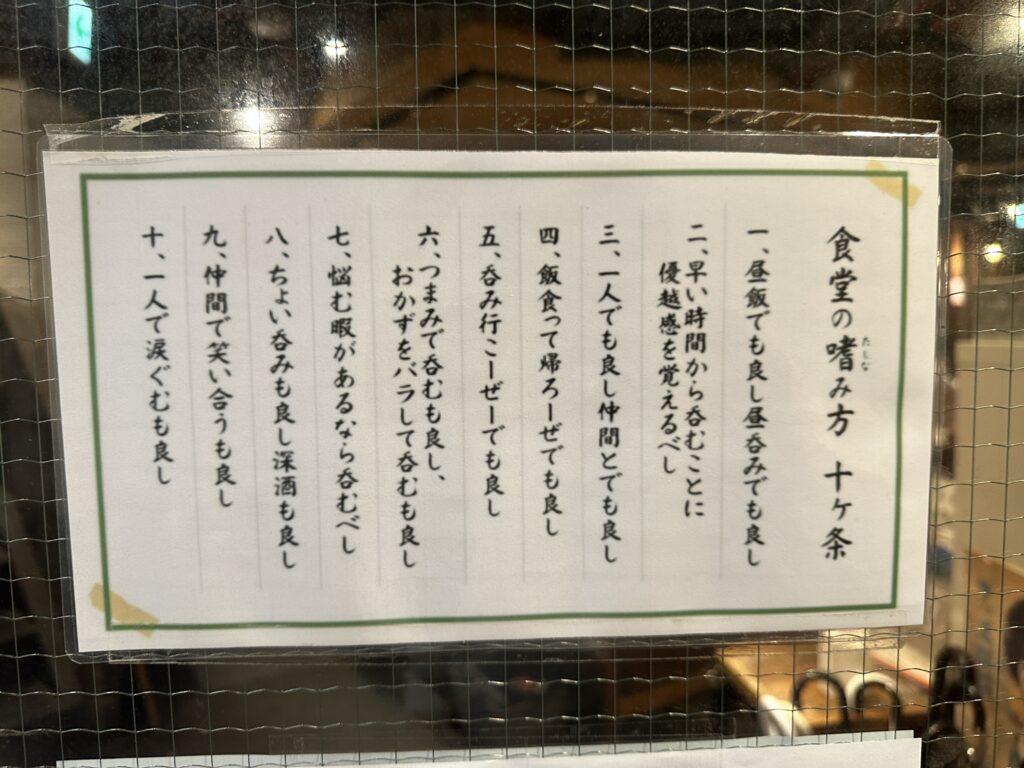 食堂の嗜み方 十ケ条
たしな
一、昼飯でも良し昼呑みでも良し
二、早い時間から呑むことに
優越感を覚えるべし
三、一人でも良し仲間とでも良し
四、飯食って帰ろーぜでも良し
五、呑み行こーぜーでも良し
六、つまみで呑むも良し、
おかずをバラして呑むも良し
七、悩む暇があるなら呑むべし
八、ちょい呑みも良し深酒も良し
九、仲間で笑い合うも良し
十、一人で涙ぐむも良し